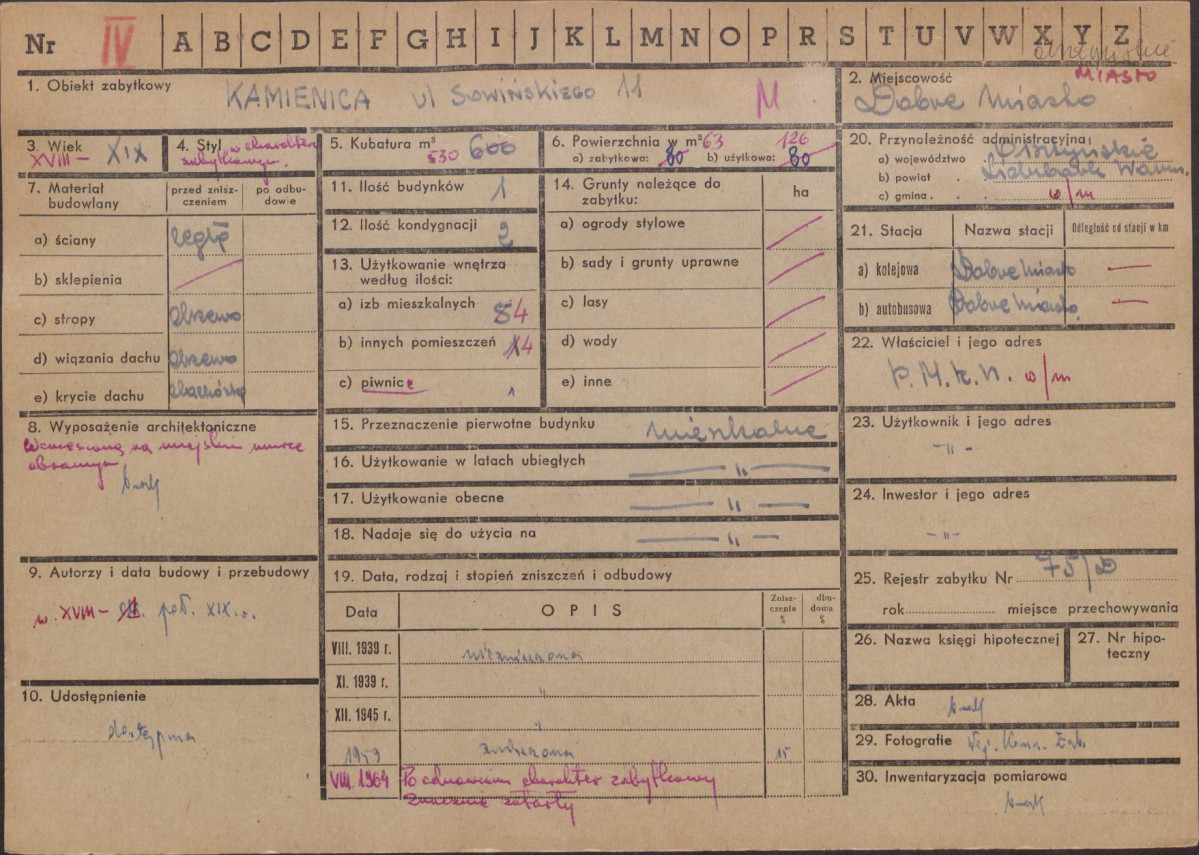 Nr IV A B C D E F G H I J K L M N O P R S T U V W X Y Z
1. Obiekt zabytkowy KAMIENICA ul SOWIŃSKIEGO 11 M
2. Miejscowość MIASTO
Dobre Miasto
3. Wiek
XVIII – XIX
4. Styl o charakterze
zabytkowym.
5. Kubatura m³
530 600
6. Powierzchnia w m² 63 126
a) zabytkowa: 80 b) użytkowa: 80
20. Przynależność administracyjna:
a) województwo Olsztyńskie
b) powiat Lidzbark Warm.
c) gmina w/m
7. Materiał budowlany
przed zniszczeniem
po odbudowie
a) ściany cegła
b) sklepienia
c) stropy drzewo
d) wiązania dachu drzewo
e) krycie dachu dachówka
11. Ilość budynków 1
12. Ilość kondygnacji 2
13. Użytkowanie wnętrza
według ilości:
a) izb mieszkalnych 8 4
b) innych pomieszczeń 1 4
c) piwnice 1
14. Grunty należące do
zabytku:
ha
a) ogrody stylowe
b) sady i grunty uprawne
c) lasy
d) wody
e) inne
21. Stacja
Nazwa stacji
Odległość od stacji w km
a) kolejowa Dobre Miasto —
b) autobusowa Dobre Miasto —
22. Właściciel i jego adres
P.M.R.N. w/m
8. Wyposażenie architektoniczne
Wzniesiona na miejskim murze
obronnym
brak
15. Przeznaczenie pierwotne budynku mieszkalne
16. Użytkowanie w latach ubiegłych — " —
17. Użytkowanie obecne — " —
18. Nadaje się do użycia na — " —
23. Użytkownik i jego adres
- " -
24. Inwestor i jego adres
- " -
9. Autorzy i data budowy i przebudowy
w. XVIII – poł. XIX w.
19. Data, rodzaj i stopień zniszczeń i odbudowy
Data
OPIS
Zniszczenia %
dbudowa %
VIII. 1939 r. niezniszczona
XI. 1939 r. "
XII. 1945 r. "
1959 zniszczona 15
VIII. 1964 Po odnowieniu charakter zabytkowy
znacznie zatarty
25. Rejestr zabytku Nr 75/D
rok miejsce przechowywania
26. Nazwa księgi hipotecznej
27. Nr hipoteczny
10. Udostępnienie
dostępna
28. Akta brak
29. Fotografie Woj. Kons. Zab.
30. Inwentaryzacja pomiarowa
brak